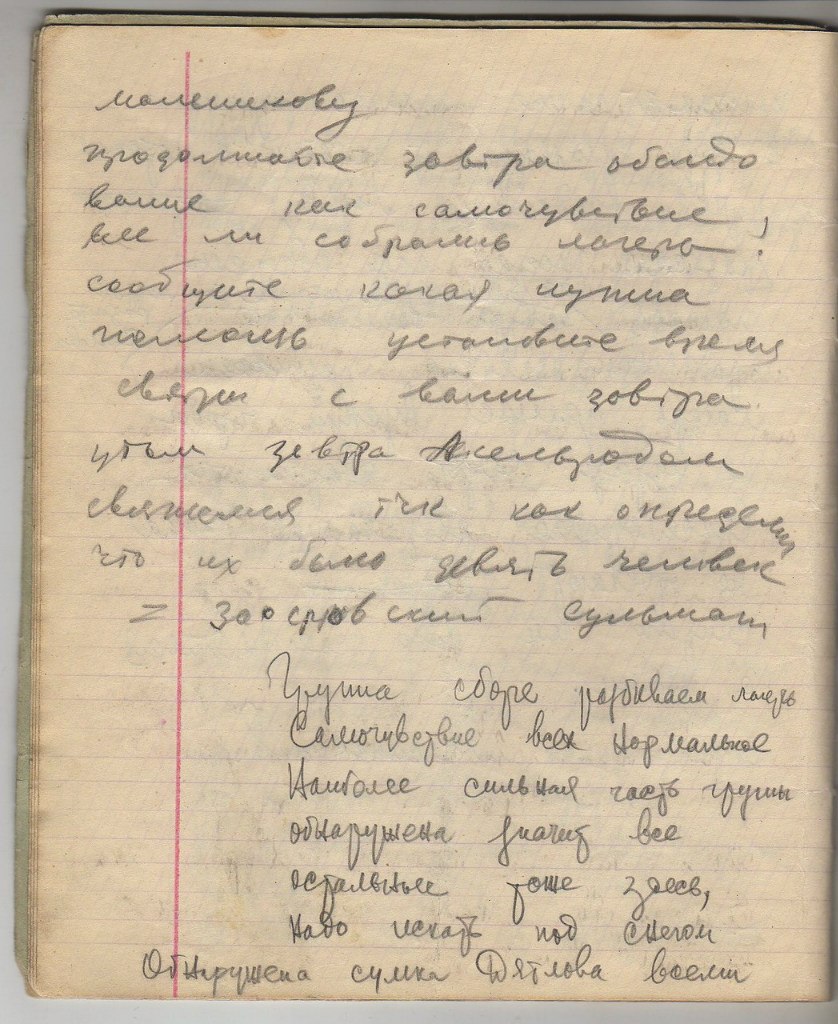 масленикову
продолжайте завтра обалдо
вание как самочувствие
все ли собрались лагерь !
сообщите какая нужна
помощь установите время
связи с вами завтра
утом завтра Аксельродом
свяжемся тчк как определили
что их было девять человек
= Заостровский Сульман
Группа сборе разбиваем лагерь
Самочувствие всех нормальное
Наиболее сильная часть группы
обнаружена значит все
остальные тоже здесь,
надо искать под снегом
Обнаружена сумка Дятлова всеми